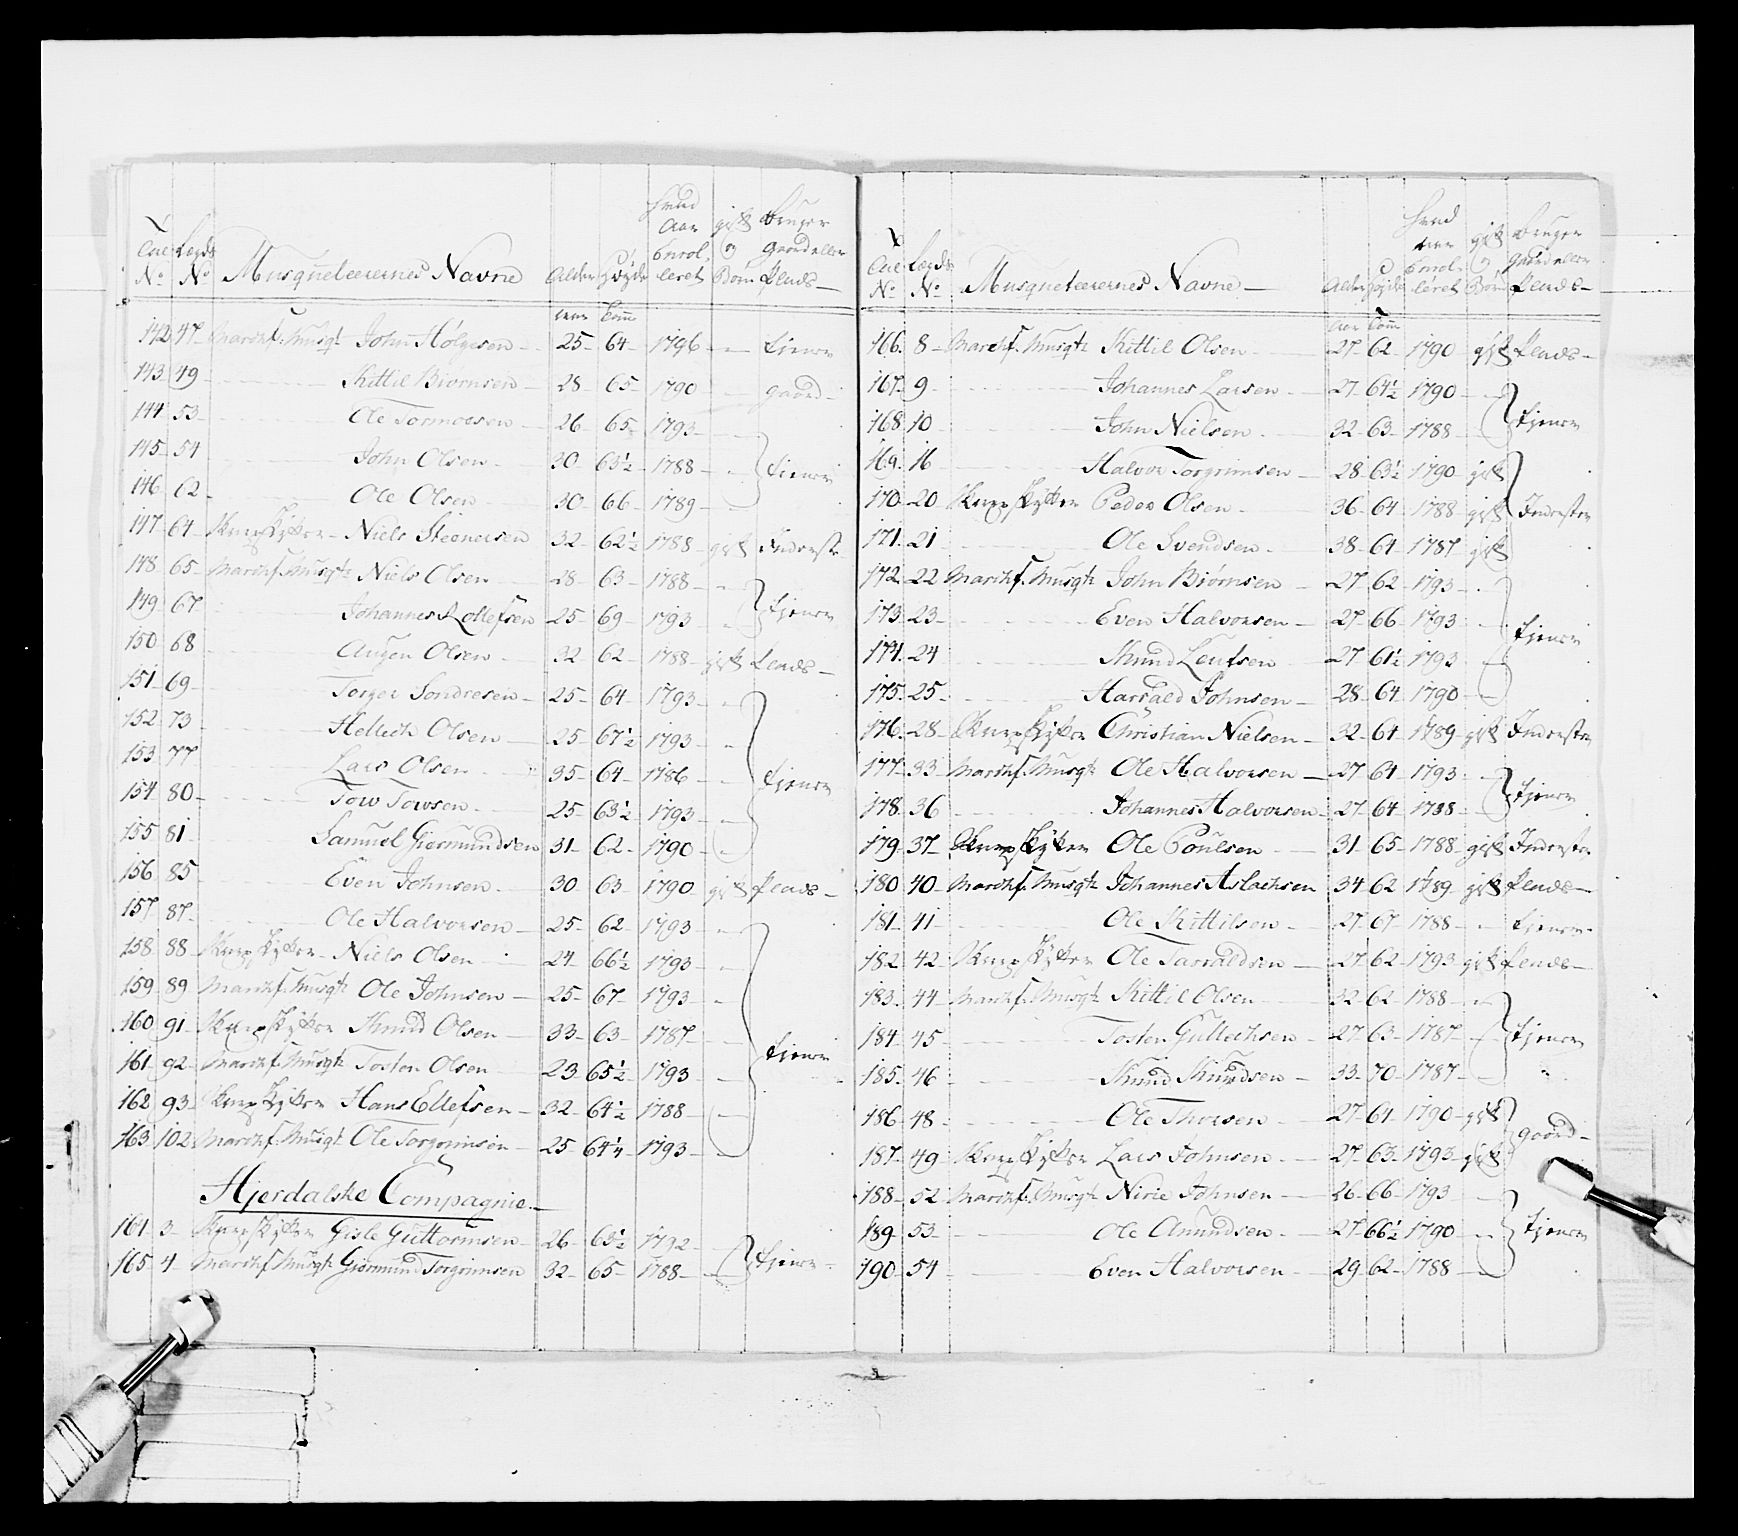 No. Legds No. Musqueteerernes Navne Alder Høyde hvad Aar Enrolleret gift og Børn Bruger Gaard eller Plads
Aar Tomm
142 47 March. Musqt. John Holgesen 25 64 1796 - tiener
143 49 Kittil Biørnsen 28 65 1790 - gaard
144 53 Ole Tormoesen 26 65 1793 -
145 54 John Olsen 30 63½ 1788 - tiener
146 62 Ole Olsen 30 66 1789 -
147 64 Skarpskytter Niels Steenersen 32 62½ 1788 gift Inderste
148 65 March. Musqt. Niels Olsen 28 63 1788 -
149 67 Johannes Rollefsen 25 69 1793 - tjener
150 68 Augen Olsen 32 62 1788 gift Plads
151 69 Torger Sondresen 25 64 1793 -
152 73 Hellech Olsen 25 67½ 1793 -
153 77 Lars Olsen 35 64 1786 - tjener
154 80 Tow Towsen 25 63½ 1793 -
155 81 Samuel Giermundsen 31 62 1790 -
156 85 Even Johnsen 30 63 1790 gift Plads
157 87 Ole Halvorsen 25 62 1793 -
158 88 Skarpskytter Niels Olsen 24 66½ 1793 -
159 89 March. Musqt. Ole Johnsen 25 67 1793 -
160 91 Skarpskytter Knud Olsen 33 63 1787 - tjener
161 92 March. Musqt. Tosten Olsen 23 65½ 1793 -
162 93 Skarpskytter Hans Ellefsen 32 64½ 1788 -
163 102 March. Musqt. Ole Torgrimsen 25 64¼ 1793 -
Hjerdalske Compagnie
164 3 Skarpskytter Gisle Guttormsen 26 63½ 1792 -
165 4 March. Musqt. Giermund Torgrimsen 32 65 1788 - tjener
No. Legds No. Musqueteerernes Navne Alder Høyde hvad Aar Enrolleret gift og Børn Bruger Gaard eller Plads
Aar Tomm
166 8 March. Musqt. Kittil Olsen 27 62 1790 gift Plads
167 9 Johannes Larsen 27 64½ 1790 -
168 10 John Nielsen 32 63 1788 - tjener
169 16 Halvor Torgrimsen 28 63½ 1790 gift
170 20 Skarpskytter Peder Olsen 36 64 1788 gift Inderster
171 21 Ole Svendsen 38 64 1787 gift
172 22 March. Musqt. John Biørnsen 27 62 1793 -
173 23 Even Halvorsen 27 66 1793 - tjener
174 24 Knud Leufsen 27 61½ 1793 -
175 25 Harrald Johnsen 28 64 1790 -
176 28 Skarpskytter Christian Nielsen 32 64 1789 gift Inderster
177 33 March. Musqt. Ole Halvorsen 27 64 1793 -
178 36 Johannes Halvorsen 27 64 1788 - tjener
179 37 Skarpskytter Ole Poulsen 31 65 1788 gift Inderster
180 40 March. Musqt. Johannes Aslachsen 34 62 1789 gift Plads
181 41 Ole Kittilsen 27 67 1788 - tjener
182 42 Skarpskytter Ole Tarraldsen 27 62 1793 gift Plads
183 44 March. Musqt. Kittil Olsen 32 62 1788 -
184 45 Tosten Gullechsen 27 63 1787 - tjener
185 46 Knud Knudsen 33 70 1787 -
186 48 Ole Thorsen 27 64 1790 gift gaard
187 49 Skarpskytter Lars Johnsen 27 63 1793 gift
188 52 March. Musqt. Nirie Johnsen 26 66 1793 -
189 53 Ole Amundsen 27 66½ 1790 - tjener
190 54 Even Halvorsen 29 62 1788 -